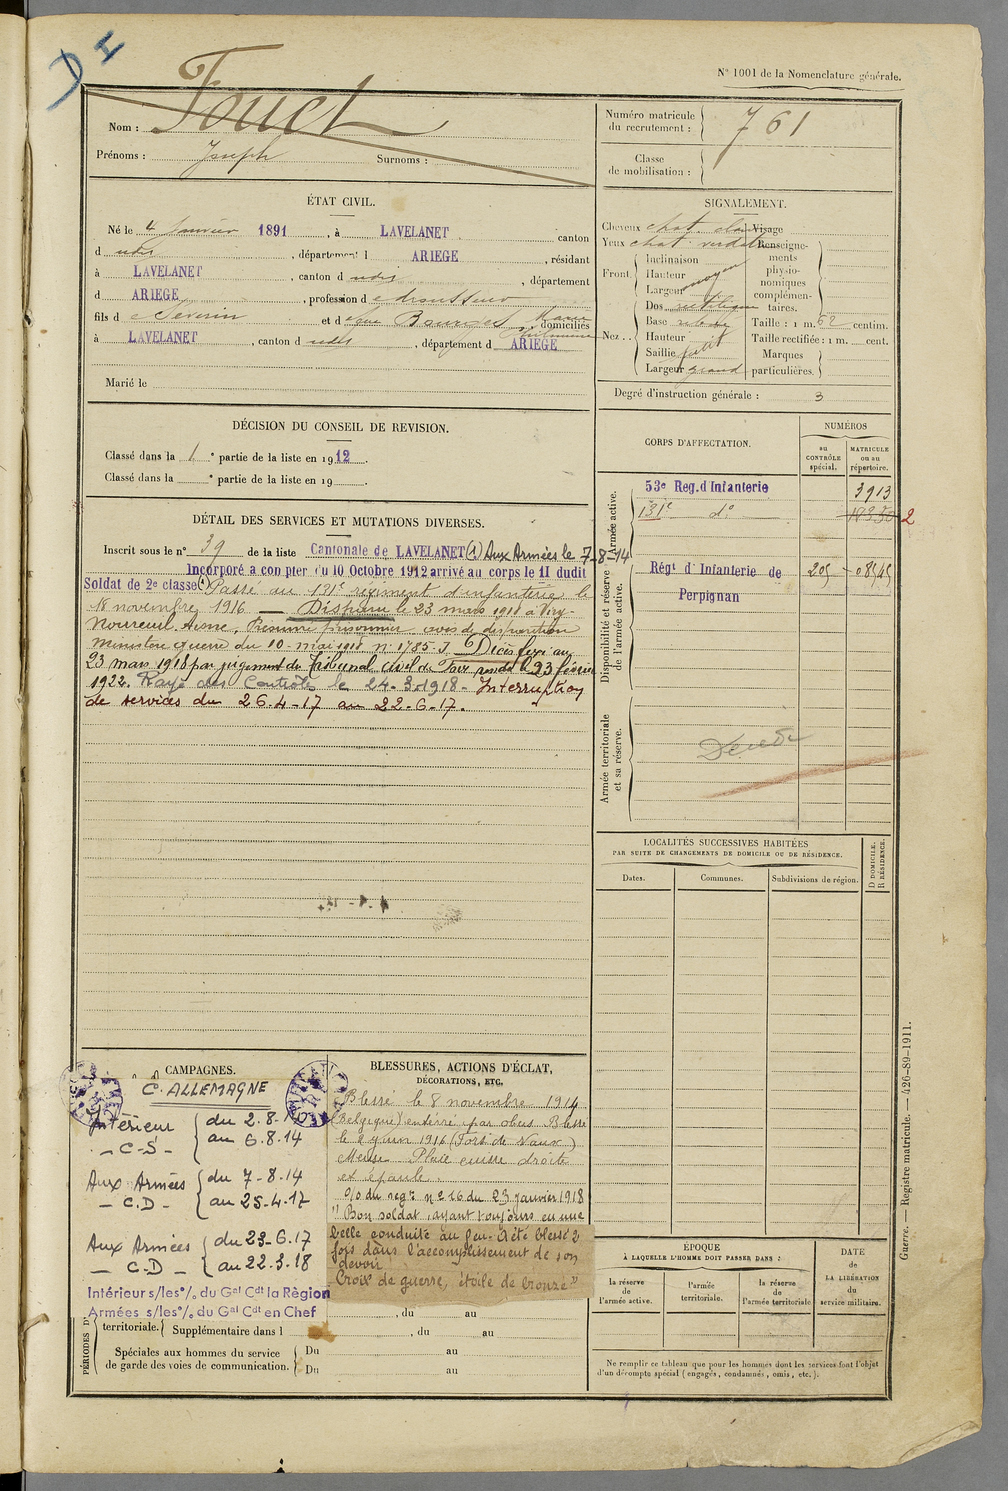 D I
N° 1001 de la Nomenclature générale.
Nom : Fouet
Prénoms : Joseph Surnoms :
Numéro matricule du recrutement : 761
Classe de mobilisation :
ÉTAT CIVIL.
Né le 4 Janvier 1891, à LAVELANET canton
d udis, département d ARIEGE, résidant
à LAVELANET, canton d udis, département
d ARIEGE, profession d
fils d e Séverin et d Marie domiciliés
à LAVELANET, canton d udis, département d ARIEGE
Marié le
SIGNALEMENT.
Cheveux chat. clair Visage
Yeux chat. verdâtre Renseignements physionomiques complémentaires.
Front. Inclinaison
Hauteur moyen
Largeur
Nez . . Dos rectiligne
Base
Hauteur
Saillie petit
Largeur grand
Taille : 1 m. 62 centim.
Taille rectifiée : 1 m. cent.
Marques particulières.
Degré d'instruction générale : 3
DÉCISION DU CONSEIL DE REVISION.
Classé dans la 1 e partie de la liste en 1912.
Classé dans la e partie de la liste en 19
DÉTAIL DES SERVICES ET MUTATIONS DIVERSES.
Inscrit sous le n° 39 de la liste Cantonale de LAVELANET (1) Aux Armées le 7-8-14
Incorporé a compter du 10 Octobre 1912 arrivé au corps le 11 dudit
Soldat de 2e classe (1) Passé au 131e régiment d'infanterie le
18 novembre 1916 — Disparu le 23 mars 1918 à Viry-
Noureuil Aisne. Présumé prisonnier avis de disparition
Ministère guerre du 10 mai 1918 n° 1785 J. Décès fixé au
23 mars 1918 par jugement du Tribunal civil de Foix rendu le 23 février
1922. Rayé des Contrôles le 24-3-1918 - Interruption
de services du 26-4-17 au 22-6-17.
CORPS D'AFFECTATION.
NUMÉROS
au CONTRÔLE spécial.
MATRICULE ou au répertoire.
Armée active.
53e Reg. d'Infanterie 3913
131e do
2
Disponibilité et réserve de l'armée active.
Régt d'Infanterie de Perpignan 205
Armée territoriale et sa réserve.
LOCALITÉS SUCCESSIVES HABITÉES
PAR SUITE DE CHANGEMENTS DE DOMICILE OU DE RÉSIDENCE.
Dates. Communes. Subdivisions de région. D DOMICILE. R RÉSIDENCE.
CAMPAGNES.
C. ALLEMAGNE
Intérieur - C-S - du 2.8.14 au 6.8.14
Aux Armées - C.D - du 7-8.14 au 25-4-17
Aux Armées - C.D - du 23-6.17 au 22.3.18
Intérieur s/les°/. du Gal Cdt la Région
Armées s/les°/. du Gal Cdt en Chef
BLESSURES, ACTIONS D'ÉCLAT,
DÉCORATIONS, ETC.
Blessé le 8 novembre 1914
(Belgique) enterré par obus Blessé
le 2 juin 1916 (Fort de Vaux)
Meuse Plaie cuisse droite
et épaule.
O/o du regt n° 16 du 23 janvier 1918
" Bon soldat, ayant toujours eu une
belle conduite au feu. A été blessé 2
fois dans l'accomplissement de son
devoir
Croix de guerre, étoile de bronze "
PÉRIODES D'
, du au
territoriale. Supplémentaire dans l , du au
Spéciales aux hommes du service de garde des voies de communication. Du au
Du au
ÉPOQUE
À LAQUELLE L'HOMME DOIT PASSER DANS :
la réserve de l'armée active.
l'armée territoriale.
la réserve de l'armée territoriale.
DATE de LA LIBÉRATION du service militaire.
Ne remplir ce tableau que pour les hommes dont les services font l'objet
d'un décompte spécial (engagés, condamnés, omis, etc.).
Guerre. — Registre matricule. — 426-89-1911.